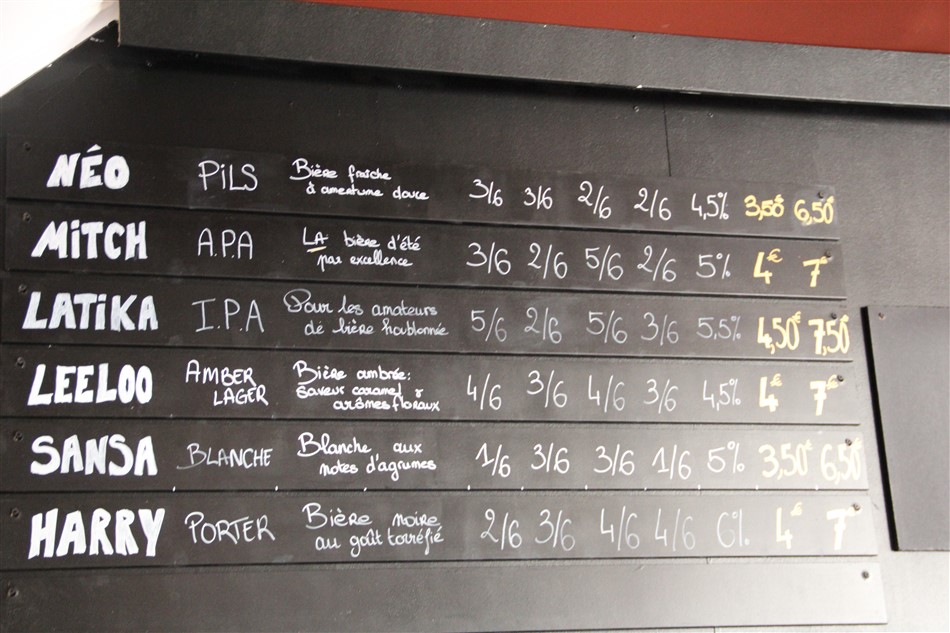 NÉO PILS Bière fraîche
à amertume douce 3/6 3/6 2/6 2/6 4,5% 3,50€ 6,50€
MITCH A.P.A LA bière d'été
par excellence 3/6 2/6 5/6 2/6 5% 4€ 7€
LATIKA I.P.A Pour les amateurs
de bière houblonnée 5/6 2/6 5/6 3/6 5,5% 4,50€ 7,50€
LEELOO AMBER
LAGER Bière ambrée:
saveur caramel &
arômes floraux 4/6 3/6 4/6 3/6 4,5% 4€ 7€
SANSA BLANCHE Blanche aux
notes d'agrumes 1/6 3/6 3/6 1/6 5% 3,50€ 6,50€
HARRY PORTER Bière noire
au goût torréfié 2/6 3/6 4/6 4/6 6% 4€ 7€